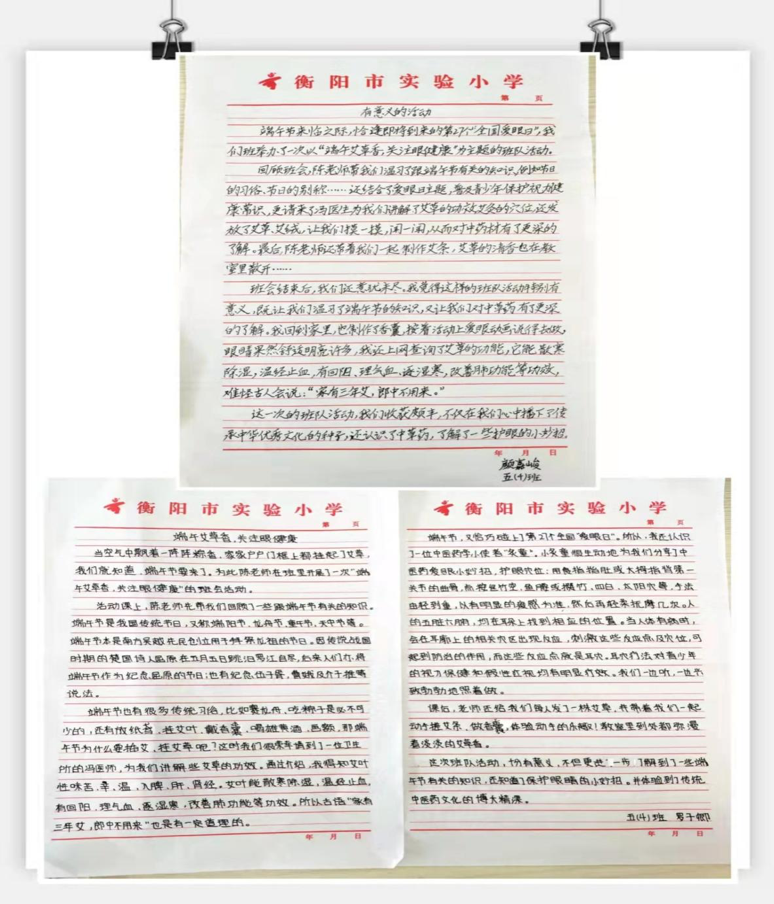 衡阳市实验小学
第 页
有意义的活动
端午节来临之际,恰逢即将到来的第27个"全国爱眼日",我
们班举办了一次以"端午艾草香,关注眼健康"为主题的班队活动。
回顾班会,陈老师带我们温习了跟端午节有关的知识,例如节日
的习俗、节日的别称……还结合了爱眼日主题,普及青少年保护视力健
康常识,更请来了冯医生为我们讲解了艾草的功效艾灸的穴位,还发
放了艾草、艾绒,让我们摸一摸,闻一闻,从而对中药材有了更深的
了解。最后,陈老师还带着我们一起制作艾条,艾草的清香也在教
室里散开……
班会结束后,我们还意犹未尽。我觉得这样的班队活动特别有
意义,既让我们温习了端午节的知识,又让我们对中草药有了更深
的了解。我回到家里,也制作了香囊,按着活动上爱眼动画说得去做,
眼睛果然舒适明亮许多,我还上网查询了艾草的功能,它能散寒
除湿,温经止血,有回阳、理气血、逐湿寒,改善肺功能等功效,
难怪古人会说:"家有三年艾,郎中不用来。"
这一次的班队活动,我们收获颇丰,不仅在我们心中播下了传
承中华优秀文化的种子,还认识了中草药,了解了一些护眼的小妙招。
年 月 日
颜嘉峻
五(4)班
衡阳市实验小学
第 页
端午艾草香,关注眼健康
当空气中飘着一阵阵粽香,家家户户门框上都挂起了艾草,
我们就知道,端午节要来了。为此陈老师在班里开展了一次"端
午艾草香,关注眼健康"的班会活动。
活动课上,陈老师先带我们回顾了一些跟端午节有关的知识。
端午节是我国传统节日,又称端阳节、龙舟节、重午节、天中节等。
端午节本是南方吴越先民创立用于拜祭龙祖的节日。因传说战国
时期的楚国诗人屈原在五月五日跳汨罗江自尽,后来人们亦将
端午节作为纪念屈原的节日;也有纪念伍子胥、曹娥及介子推等
说法。
端午节也有很多传统习俗,比如赛龙舟、吃粽子是必不可
少的,还有放纸鸢、挂艾叶、戴香囊、喝雄黄酒、画额,那端
午节为什么要插艾、挂艾草呢?这时我们很荣幸请到了一位卫生
所的冯医师,为我们讲解些艾草的功效。通过介绍,我得知艾叶
性味苦、辛、温、入脾、肝、肾经。艾叶能散寒除湿,温经止血,
有回阳、理气血、逐湿寒,改善肺功能等功效。所以古语"家有
三年艾,郎中不用来"也是有一定道理的。
年 月 日
衡阳市实验小学
第 页
端午节,又恰巧碰上了第27个全国"爱眼日"。所以,我还认识
了一位中医药守小使者"灸童"。小灸童眼生动地为我们分享了中
医药爱眼小妙招,护眼穴位:用食指指肚或大拇指背第一
关节的曲骨,点按丝竹空、鱼腰或攒竹、四白、太阳穴等,手法
由轻到重,以有明显的酸感为准,然后再轻柔抚摩几次。人
的五脏六腑,均在耳朵上找到相应的位置。当人体有病时,
会在耳廓上的相关穴区出现反应,刺激这些反应点及穴位,可
起到防治的作用,而这些反应点就是耳穴。耳穴疗法对青少年
的视力保健和假性近视均有明显疗效。我们一边听,一边节
课后,老师还给我们每人发了一棵艾草,并带着我们一起
动手搓艾条、做香囊,体验动手的乐趣!教室里到处都弥漫
着淡淡的艾草香。
这次班队活动,別有意义,不但更进一步了解到了一些端
午节有关的知识,还知道了保护眼睛的小妙招。并体验到了传统
中医药文化的博大精深。
五(4)班 罗子卿
年 月 日